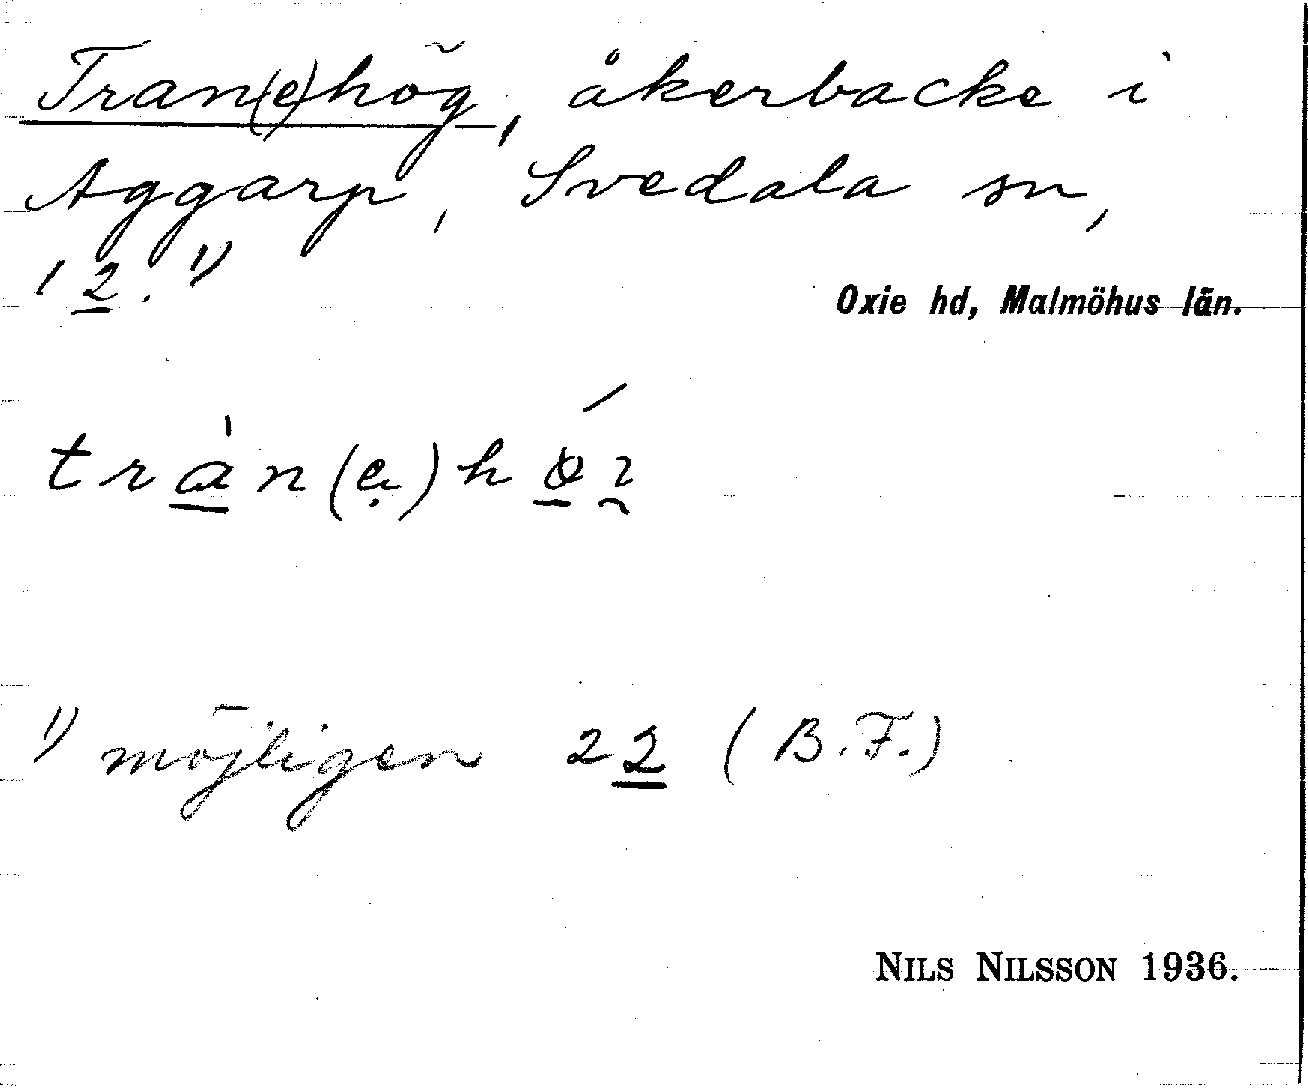 Tran(e)hög, åkerbacke i
Aggarp, Svedala sn,
12. 1)
Oxie hd, Malmöhus län.
tràn(ę)hǿɿ
1) möjligen 22 (B.F.)
NILS NILSSON 1936.